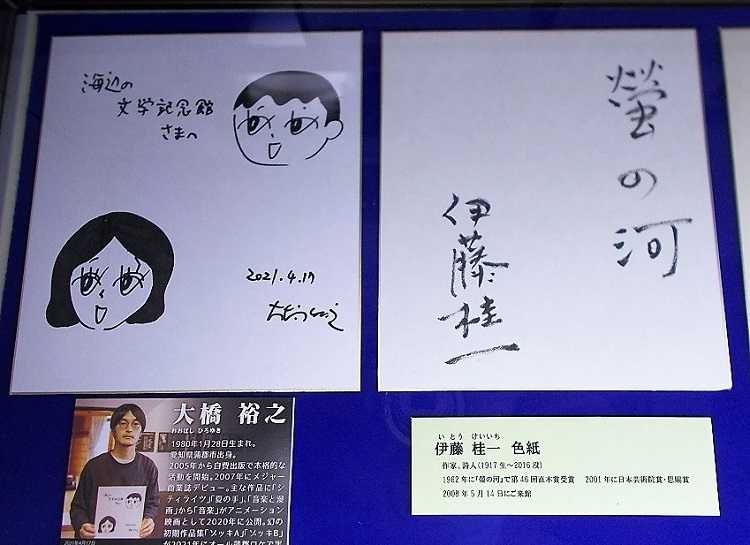 海辺の
文学記念館
さまへ
2021.4.17
螢の河
伊藤桂一
大橋 裕之
おおはし ひろゆき
1980年1月28日生まれ。
愛知県蒲郡市出身。
2005年から自費出版で本格的な
活動を開始。2007年にメジャー
商業誌デビュー。主な作品に「シ
ティライツ」「夏の手」、「音楽と漫
画」から「音楽」がアニメーション
映画として2020年に公開。幻の
初期作品集「ゾッキA」「ゾッキB」
が2021年にオール蒲郡ロケで実
2021年4月17日
いとう けいいち
伊藤 桂一 色紙
作家、詩人(1917生~2016没)
1962年に「螢の河」で第46回直木賞受賞 2001年に日本芸術院賞・恩賜賞
2008年5月14日にご来館